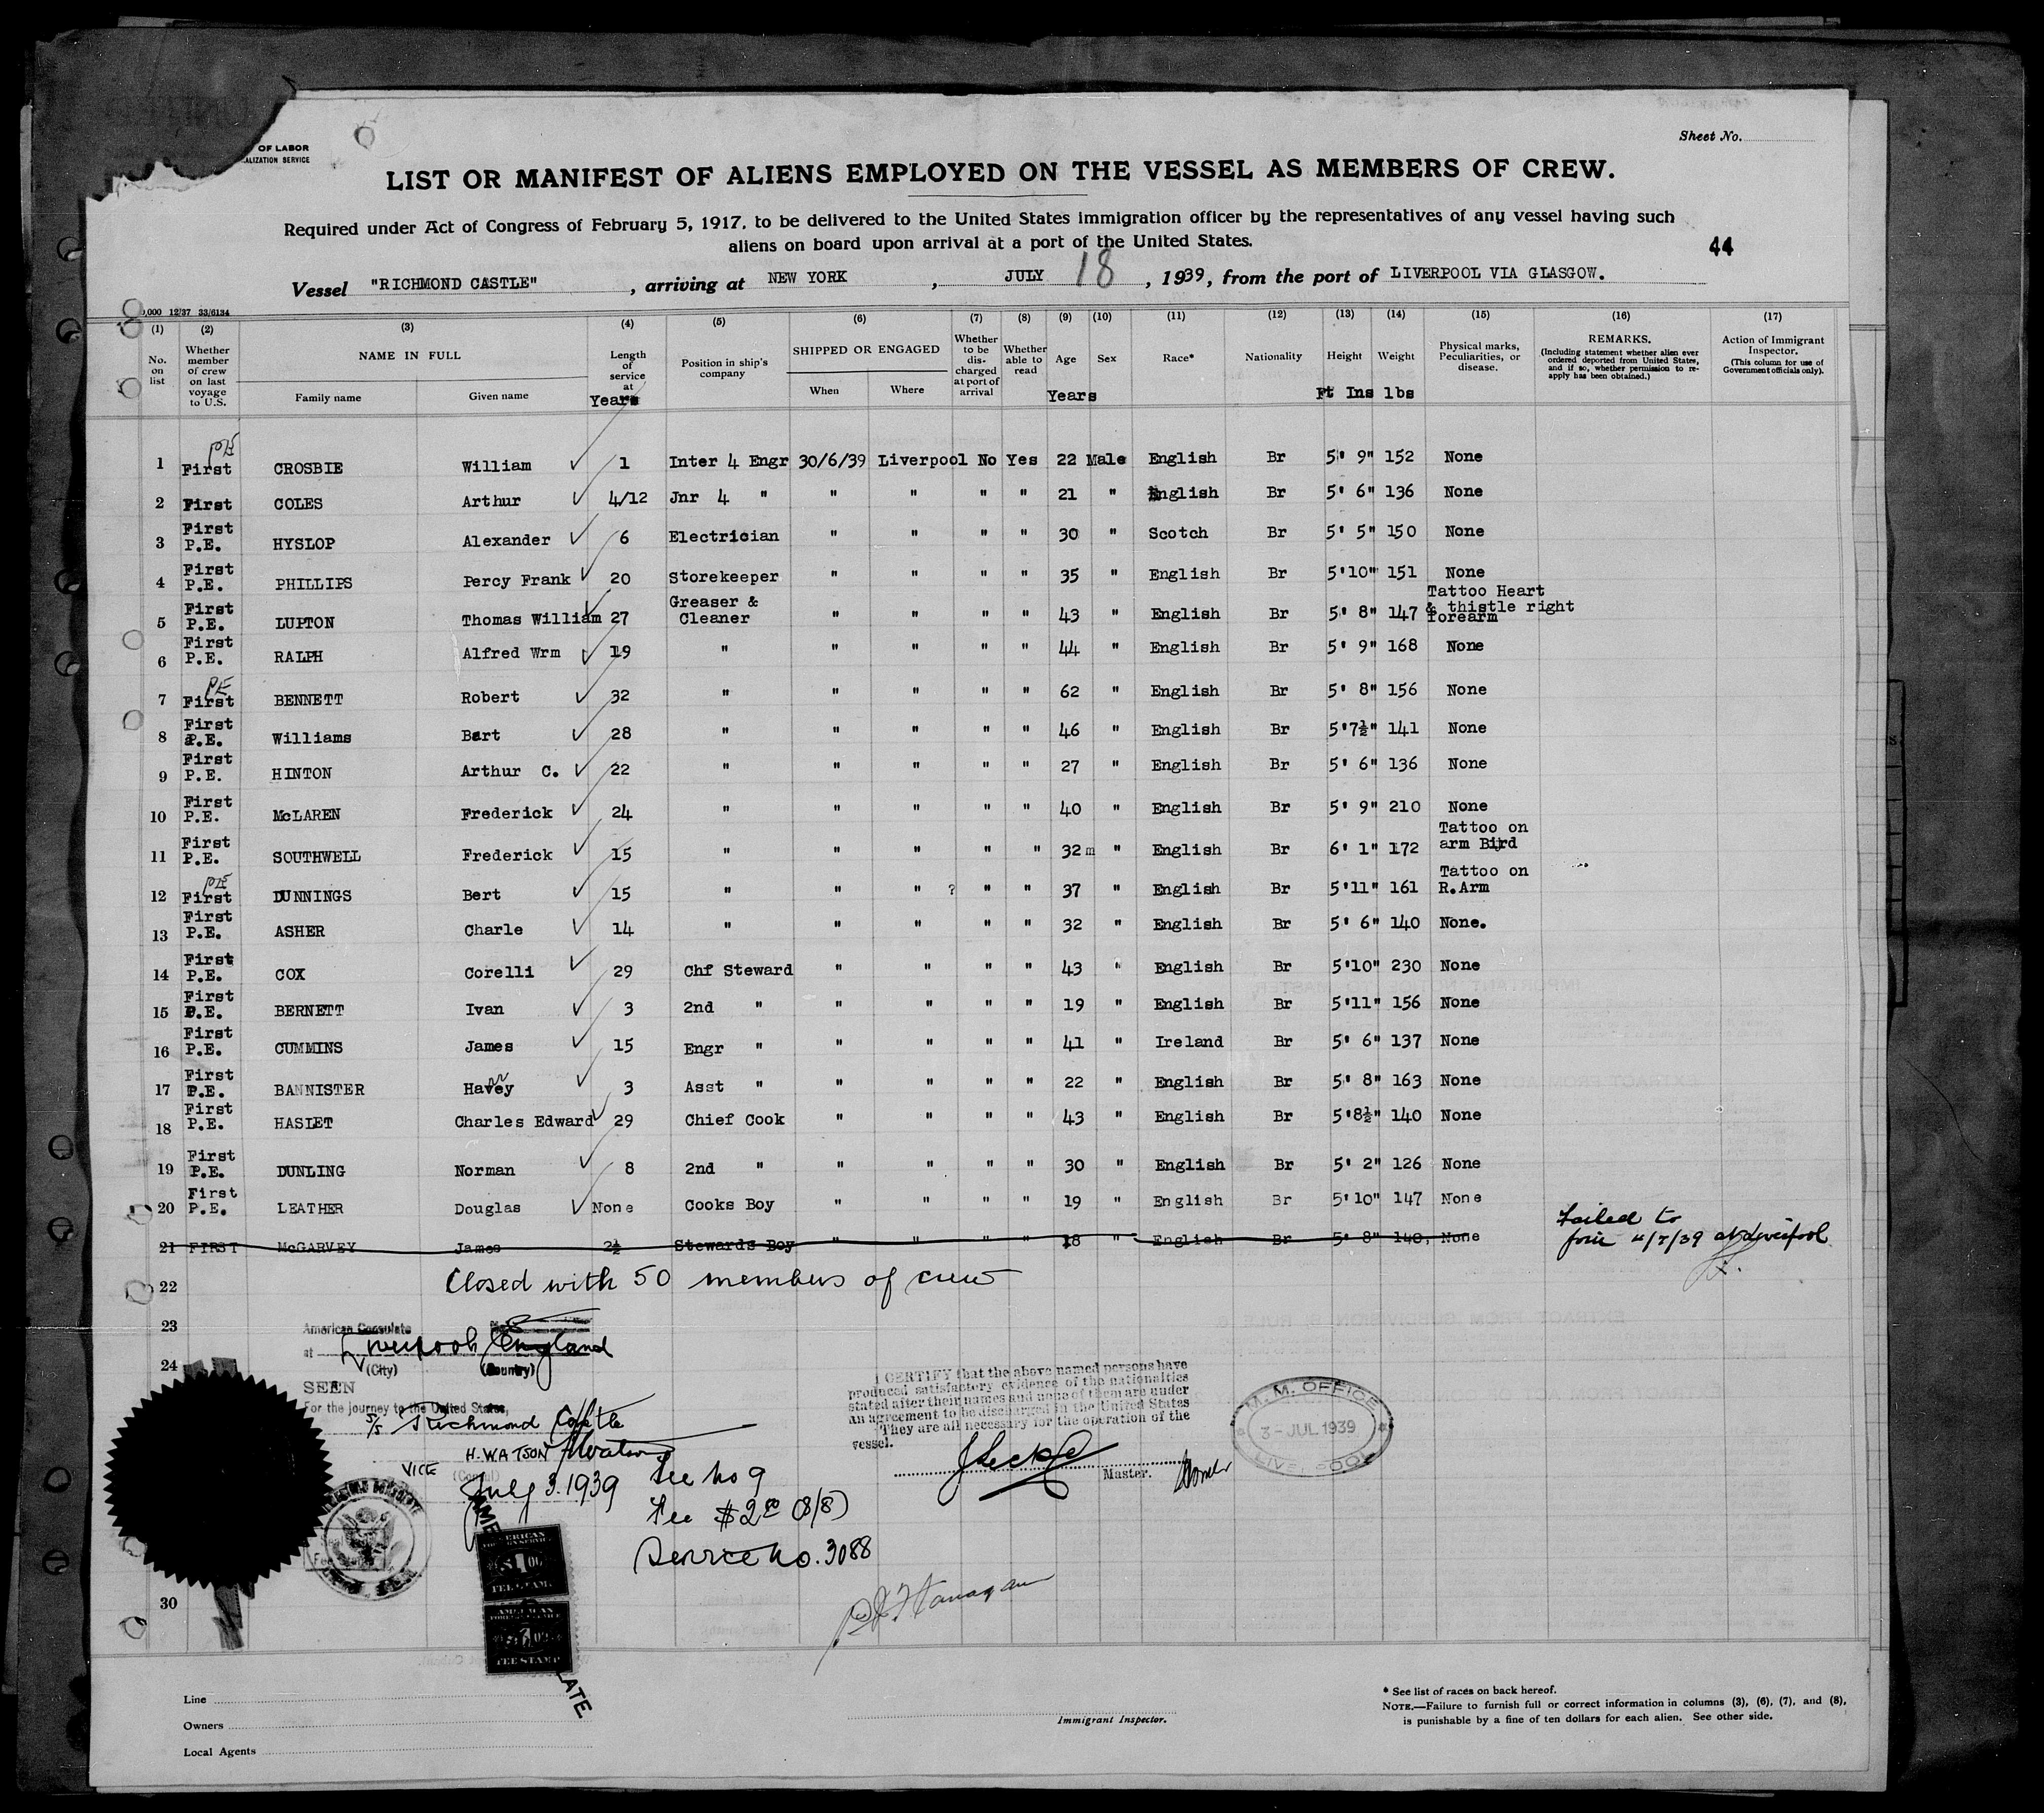 OF LABOR
ALIZATION SERVICE
Sheet No.
LIST OR MANIFEST OF ALIENS EMPLOYED ON THE VESSEL AS MEMBERS OF CREW.
Required under Act of Congress of February 5, 1917, to be delivered to the United States immigration officer by the representatives of any vessel having such
aliens on board upon arrival at a port of the United States.
44
Vessel "RICHMOND CASTLE" , arriving at NEW YORK , JULY 18 , 1939, from the port of LIVERPOOL VIA GLASGOW.
,000 12/37 33/6134
(1) (2) (3) (4) (5) (6) (7) (8) (9) (10) (11) (12) (13) (14) (15) (16) (17)
No. on list Whether member of crew on last voyage to U.S. NAME IN FULL Family name Given name Length of service at Years Position in ship's company SHIPPED OR ENGAGED When Where Whether to be discharged at port of arrival Whether able to read Age Years Sex Race* Nationality Height Ft Ins Weight lbs Physical marks, Peculiarities, or disease. REMARKS. (Including statement whether alien ever ordered deported from United States, and if so, whether permission to re-apply has been obtained.) Action of Immigrant Inspector. (This column for use of Government officials only).
1 PE First CROSBIE William ✓ 1 Inter 4 Engr 30/6/39 Liverpool No Yes 22 Male English Br 5' 9" 152 None
2 First COLES Arthur ✓ 4/12 Jnr 4 " " " " " 21 " English Br 5' 6" 136 None
3 First P.E. HYSLOP Alexander ✓ 6 Electrician " " " " 30 " Scotch Br 5' 5" 150 None
4 First P.E. PHILLIPS Percy Frank ✓ 20 Storekeeper " " " " 35 " English Br 5'10" 151 None
5 First P.E. LUPTON Thomas William ✓ 27 Greaser & Cleaner " " " " 43 " English Br 5' 8" 147 Tattoo Heart & thistle right forearm
6 First P.E. RALPH Alfred Wrm ✓ 19 " " " " " 44 " English Br 5' 9" 168 None
7 PE First BENNETT Robert ✓ 32 " " " " " 62 " English Br 5' 8" 156 None
8 First P.E. Williams Bert ✓ 28 " " " " " 46 " English Br 5'7½" 141 None
9 First P.E. HINTON Arthur C. ✓ 22 " " " " " 27 " English Br 5' 6" 136 None
10 First P.E. McLAREN Frederick ✓ 24 " " " " " 40 " English Br 5' 9" 210 None
11 First P.E. SOUTHWELL Frederick ✓ 15 " " " " " 32 m " English Br 6' 1" 172 Tattoo on arm Bird
12 PE First DUNNINGS Bert ✓ 15 " " " ? " " 37 " English Br 5'11" 161 Tattoo on R.Arm
13 First P.E. ASHER Charle ✓ 14 " " " " " 32 " English Br 5' 6" 140 None.
14 First P.E. COX Corelli ✓ 29 Chf Steward " " " " 43 " English Br 5'10" 230 None
15 First P.E. BERNETT Ivan ✓ 3 2nd " " " " " 19 " English Br 5'11" 156 None
16 First P.E. CUMMINS James ✓ 15 Engr " " " " " 41 " Ireland Br 5' 6" 137 None
17 First P.E. BANNISTER Havey ✓ 3 Asst " " " " " 22 " English Br 5' 8" 163 None
18 First P.E. HASLET Charles Edward ✓ 29 Chief Cook " " " " 43 " English Br 5'8½" 140 None
19 First P.E. DUNLING Norman ✓ 8 2nd " " " " " 30 " English Br 5' 2" 126 None
20 First P.E. LEATHER Douglas ✓ None Cooks Boy " " " " 19 " English Br 5'10" 147 None
21 FIRST McGARVEY James 2½ Stewards Boy " " " " 18 " English Br 5' 8" 140, None Failed to join 4/7/39 at Liverpool
22 Closed with 50 members of crew
23
24
30
American Consulate
at Liverpool England
(City) (Country)
SEEN
For the journey to the United States,
S/S Richmond Castle
H. WATSON HWatson
VICE (Consul)
July 3. 1939
Fee No 9
Fee $2.00 (8/8)
Service No. 3088
I CERTIFY that the above named persons have
produced satisfactory evidence of the nationalities
stated after their names and none of them are under
an agreement to be discharged in the United States
They are all necessary for the operation of the
vessel.
Master.
M. M. OFFICE
3 - JUL 1939
LIVERPOOL
AMERICAN
$1.00
FEE STAMP
AMERICAN
FEE STAMP
Line
Owners
Local Agents
Immigrant Inspector.
* See list of races on back hereof.
NOTE.—Failure to furnish full or correct information in columns (3), (6), (7), and (8),
is punishable by a fine of ten dollars for each alien. See other side.